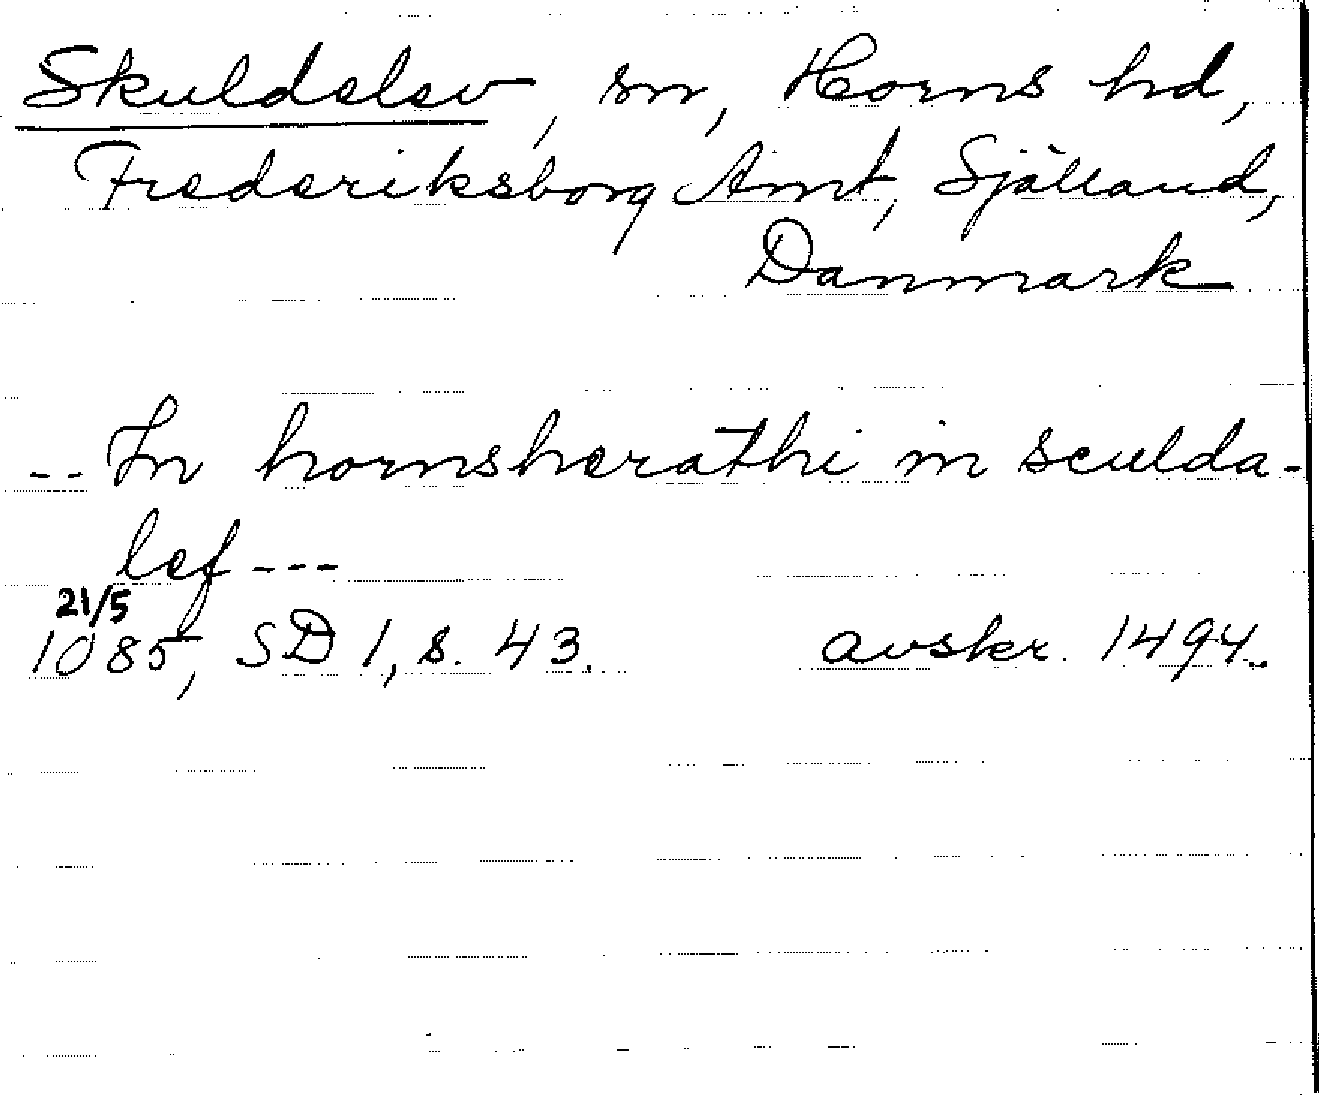 Skuldelev, sn, Horns hd,
Frederiksborg Amt, Själland,
Danmark
-- In hornsherathi in sculda-
lef ---
21/5
1085, SD 1, s. 43. avskr. 1494.